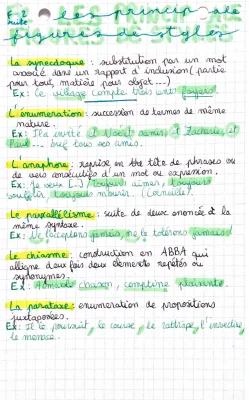 F-2
suite
Les principales
figures de styles
La synecdoque : substitution par un mot
associé dans un rapport d'inclusion (partie
pour tout, matière pour objet...)
Ex : Le village compte trois cent foyers.
L'enumeration : succession de termes de même
nature.
Ex : Il a invité et et Zacharie, et
Paul... bref tous ses amis.
L'anaphore : reprise en tête de phrases ou
de vers consécutifs d'un mot ou expression.
Ex : Je veux (...) toujours aimer, toujours
souffrir toujours mourir. (Corneille).
Le parallélisme : suite de deux énoncés à la
même syntaxe.
Ex : Ne l'acceptons jamais, ne le tolérons jamais!
Le chiasme : construction en ABBA qui
alligne deux fois deux éléments répétés ou
synonymes.
Ex : chaison, comptine plaisante.
La parataxe : enumeration de propositions
juxtaposées.
Ex : Il le poursuit, le course, le rattrape, l'invective,
le menace.